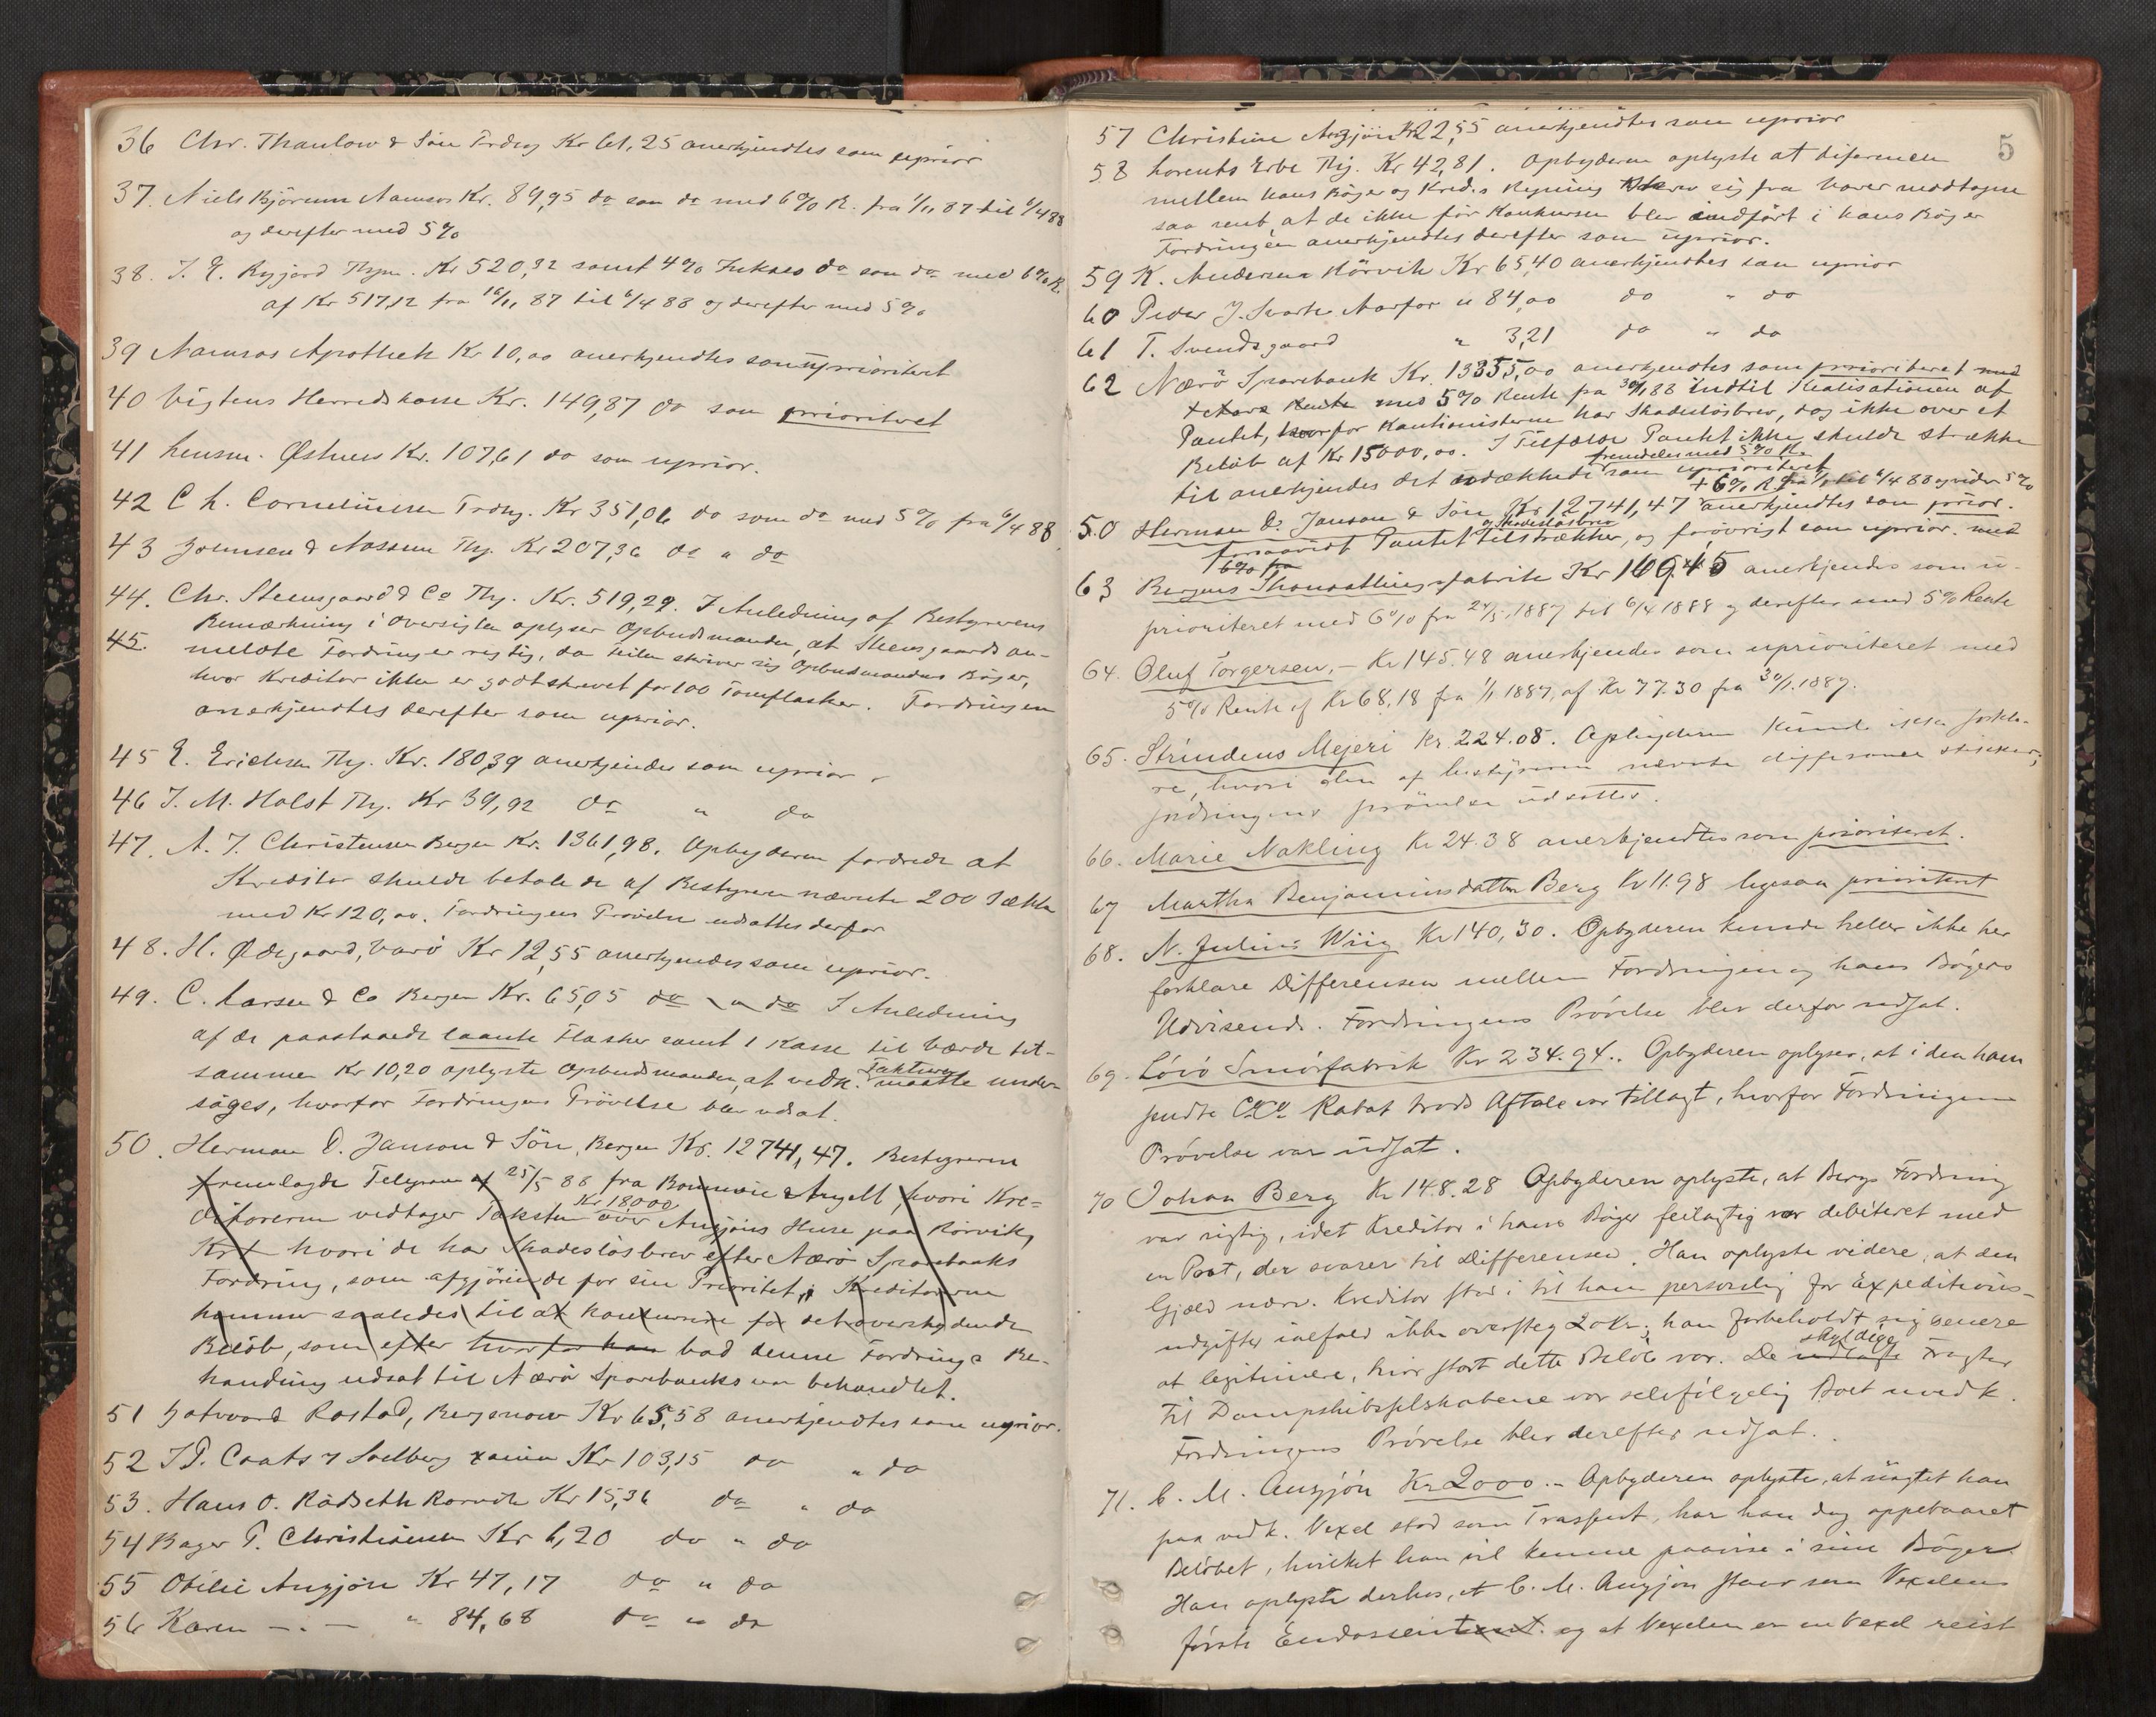 36 Chr. Thaulow & Søn Trdhg Kr 61,25 anerkjendtes som uprior
37. Niels Bjørum Namsos Kr. 89,95 do som do med 6% R. fra 1/11 87 til 6/4 88
og derefter med 5%
38. J. E. Rygjord Thjm. Kr 520,32 samt 4% Inkasso do som do med 6% R.
af Kr 517,12 fra 16/11 87 til 6/4 88 og derefter med 5%
39 Namsos Apothek Kr 10,00 anerkjendtes som uprioritert
40 Vigtens Herredskasse Kr. 149,87 do som prioritret
41 Lensm. Østnes Kr. 107,61 do som uprior.
42 C L. Corneliussen Trdhg. Kr 351,06 do som do med 5% fra 6/4 88
43 Johnsen & Aossum Thj. Kr 207,36 do " do
44. Chr. Steensgaard & Co Thj. Kr. 519,29. I Anledning af Bestyrerens
Bemærkning i Oversigten oplyser Opbudsmanden, at Steensgaards an-
45. meldte Fordring er rigtig, da Feilen skriver sig Opbudsmandens Bøger,
hvor Kreditor ikke er godtskrevet for 100 Tomflasker. Fordringen
anerkjendtes derefter som uprior.
45 E. Erichsen Thj. Kr. 180,39 anerkjendes som uprior
46 J. M. Holst Thj. Kr 39,92 do " do
47. A. J. Christensen Bergen Kr. 1361,98. Opbyderen fordrede at
Kreditor skulde betale de af Bestyreren nævnte 200 Sække
med Kr 120,00. Fordringens Prøvelse udsattes derfor
48. H. Ødegaard, Varø Kr 12,55 anerkjendes som uprior.
49. C. Larsen & Co Bergen Kr. 65,05 do " do I Anledning
af de paastaaede laante Flasker samt 1 Kasse til Værdi til-
sammen Kr 10,20 oplyste Opbudsmanden, at vedk. Faktura maatte under-
søges, hvorfor Fordringens Prøvelse blev udsat.
50. Herman D. Janson & Søn, Bergen Kr. 12741,47. Bestyreren
fremlagde Telegram af 25/5 88 fra Bonnevie & Angell, hvori Kre-
ditorerne vedtager Taksten Kr 18000 over Angjøns Huse paa Rørvik,
Krf hvori de har Skadesløsbrev efter Nærø Sparebanks
Fordring, som afgjørende for sin Prioritet, Kreditorerne
kommer saaledes til at konkurrere for det overskydende
Beløb, som efter hvorfor han bad denne Fordrings Be-
handling udsat til Nærø Sparebanks var behandlet.
51 Hatvaard Rostad, Bergsnov Kr 65,58 anerkjendtes som uprior.
52 J P. Coats Solberg Kr 103,15 do " do
53. Hans O. Rødseth Rørvik Kr 15,36 do " do
54 Bager P. Christiansen Kr 6,20 do " do
55 Otilie Angjøn Kr 47,17 do " do
56 Karen — . — " 84,68 do " do
5
57 Christine Angjøn Kr 22,55 anerkjendtes som uprior
58 Lorents Erbe Thj. Kr 42,81. Opbyderen oplyste at diferensen
mellem hans Bøger og Kreds. Regning skrev sig fra Varer modtagne
saa sent, at de ikke før Konkursen blev indført i hans Bøger
Fordringen anerkjendtes derefter som uprior.
59 K. Andersen Rørvik Kr 65,40 anerkjendtes som uprior
60 Peder J. Aarfor " 84,00 do " do
61 T. Svendsgaard " 3,21 do " do
62 Nærø Sparebank Kr. 13355,00 anerkjendtes som prioriteret med
Rente med 5% Rente fra 30/1 88 indtil Realisationen af
Pantet, hvorfor Kautionisterne har Skadesløsbrev, dog ikke over et
Beløb af Kr 15000,00. I Tilfælde Pantet ikke skulde strække
til anerkjendes det udækkede fremdeles med 5% R. som uprioriteret
50 Herman D. Janson & Søn Kr 12,741,47 + 6% R. fra 1/1 til 6/4 88 og videre 5% anerkjendtes som prior.
forsaavidt Pantet og Skadesløsbrev tilstrækker, og forøvrigt som uprior. med
6% fra
63 Bergens Skomatlingsfabrik Kr 169.45 anerkjendes som u-
prioriteret med 6% fra 24/5 1887 til 6/4 1888 og derefter med 5% Rente
64. Oluf Torgersen, – Kr 145.48 anerkjendes som uprioriteret med
5% Rente af Kr 68,18 fra 1/1 1887, af Kr 77.30 fra 30/1.1887.
65. Strindens Mejeri Kr. 224.08. Opbyderen kunde ikke forkla-
re, hvori den af bestyreren nævnte differense stikker;
fordringens prøvelse udsattes.
66. Marie Nakling Kr 24.38 anerkjendtes som prioriteret.
67 Martha Benjaminsdatter Berg Kr 11.98 ligesaa prioriteret
68. N. Julius Wiig Kr 140,30. Opbyderen kunde heller ikke her
forklare Differensen mellem Fordringen og hans Bøgers
Udvisende. Fordringens Prøvelse blev derfor udsat.
69. Løvø Smørfabrik Kr 234.94. Opbyderen oplyser, at i den ham
sendte Rabat trods Aftale var tillagt, hvorfor Fordringens
Prøvelse var udsat.
70 Johan Berg Kr 148.28 Opbyderen oplyste, at Bergs Fordring
var rigtig, idet Kreditor i hans Bøger feilagtig var debiteret med
en Post, der svarer til Differensen. Han oplyste videre, at den
Gjæld nærv. Kreditor stod i til ham personlig for Expeditions-
udgifter ialfald ikke oversteg 20 Kr.; han forbeholdt sig senere
at legitimere, hvor stort dette Beløb var. De udlagte skyldige Fragter
til Dampskibsselskabene var selvfølgelig Boet uvedk.
Fordringens Prøvelse blev derefter udsat.
71. C. M. Angjøn Kr 2000.– Opbyderen oplyste, at uagtet han
paa vedk. Vexel stod som Trassent, har han dog oppebaaret
Beløbet, hvilket han vil kunne paavise i sine Bøger.
Han oplyste derhos, at C. M. Angjøn staar som Vexelens
første Endossent og at Vexelen er en Vexel reist